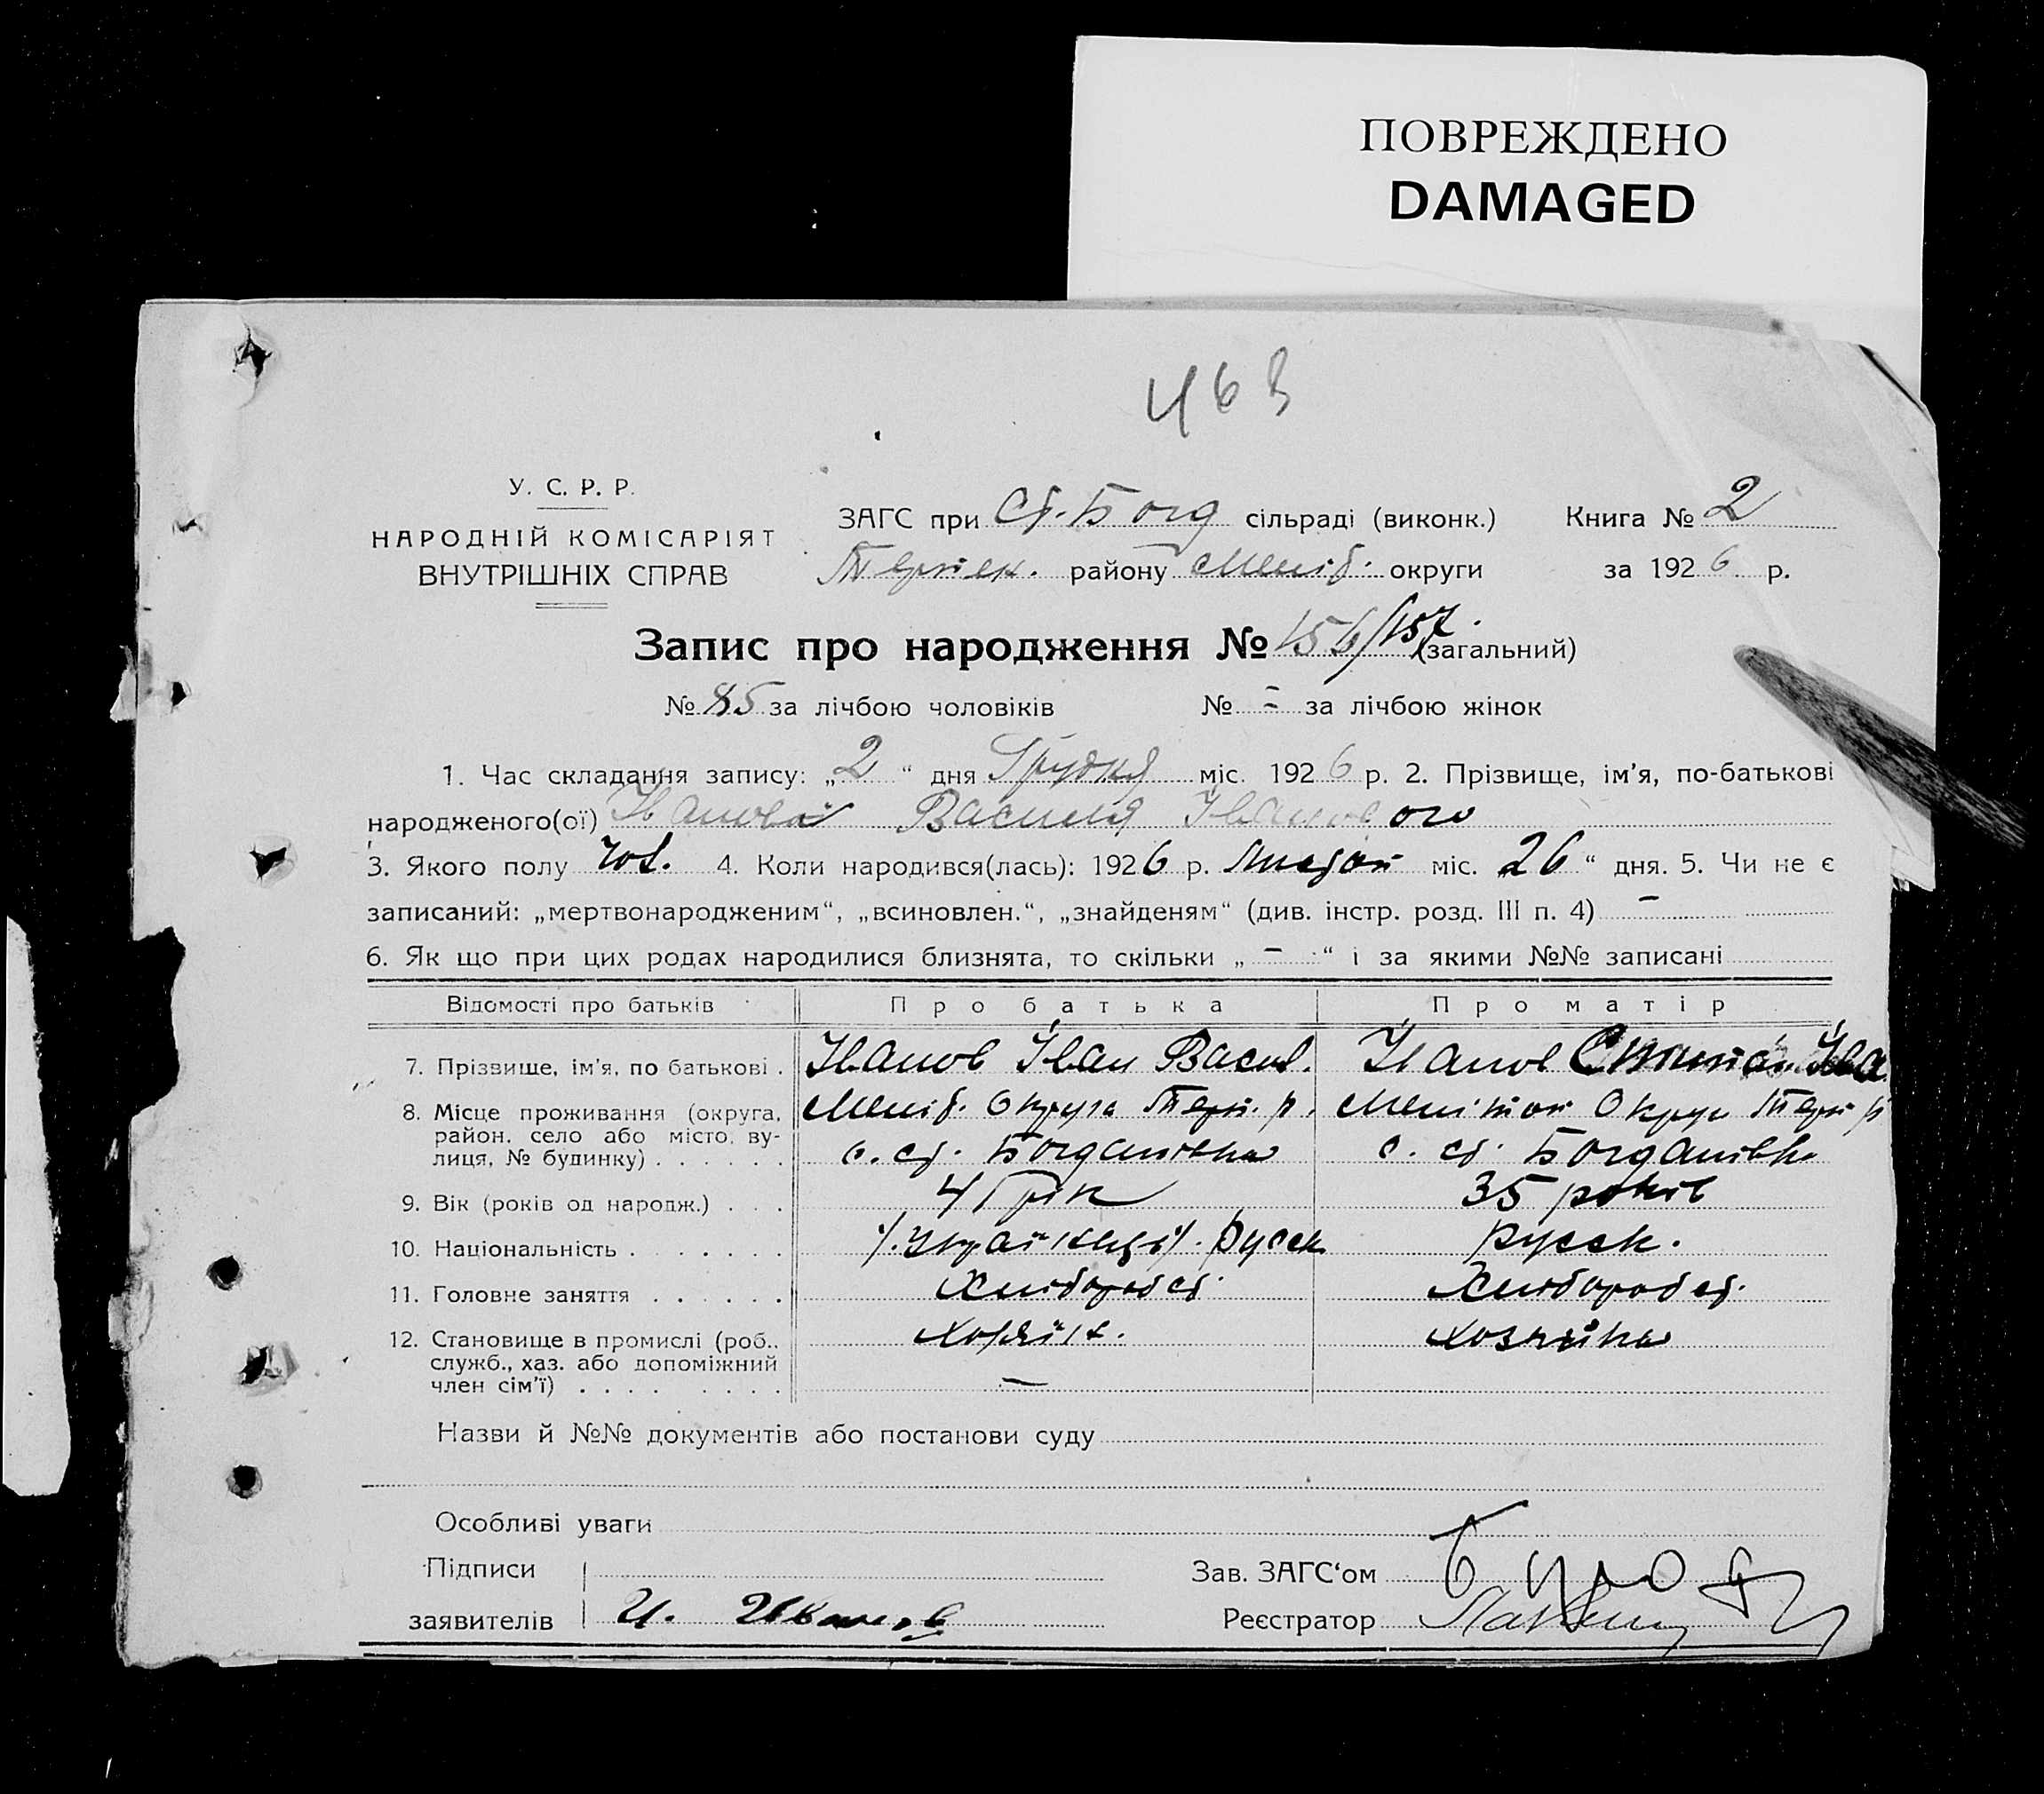 ПОВРЕЖДЕНО
DAMAGED
463
У. С. Р. Р.
НАРОДНІЙ КОМІСАРІЯТ
ВНУТРІШНІХ СПРАВ
ЗАГС при Ст. Богд сільраді (виконк.) Книга № 2
району Меліт. округи за 1926 р.
Запис про народження № 156/157. (загальний)
№ 85 за лічбою чоловіків № - за лічбою жінок
1. Час складання запису: „2“ дня Грудня міс. 1926 р. 2. Прізвище, ім'я, по-батькові
народженого(ої) Іванова Василя Іванового
3. Якого полу чол. 4. Коли народився(лась): 1926 р. Листоп міс. 26“ дня. 5. Чи не є
записаний: „мертвонародженим“, „всиновлен.“, „знайденям“ (див. інстр. розд. III п. 4) -
6. Як що при цих родах народилися близнята, то скільки „ - “ і за якими №№ записані
Відомості про батьків Про батька Про матір
7. Прізвище, ім'я, по батькові . Іванов Іван Васил. Іванов Іва
8. Місце проживання (округа, Меліт. Округа Терп. р. Мелітоп Округ Терп р
район, село або місто, ву-
лиця, № будинку) . . . . . . с. ст. Богданівка с. ст. Богданівк
9. Вік (років од народж.) . . . 41 рік 35 років
10. Національність . . . . . . . Русск Русск.
11. Головне заняття . . . . . . Хлібороб ст. Хлібороб ст.
12. Становище в промислі (роб., Хозяїн. хозяйка
служб., хаз. або допоміжний
член сім'ї) . . . . . . . . —
Назви й №№ документів або постанови суду
Особливі уваги
Підписи
заявителів И. Иванов
Зав. ЗАГС'ом
Реєстратор